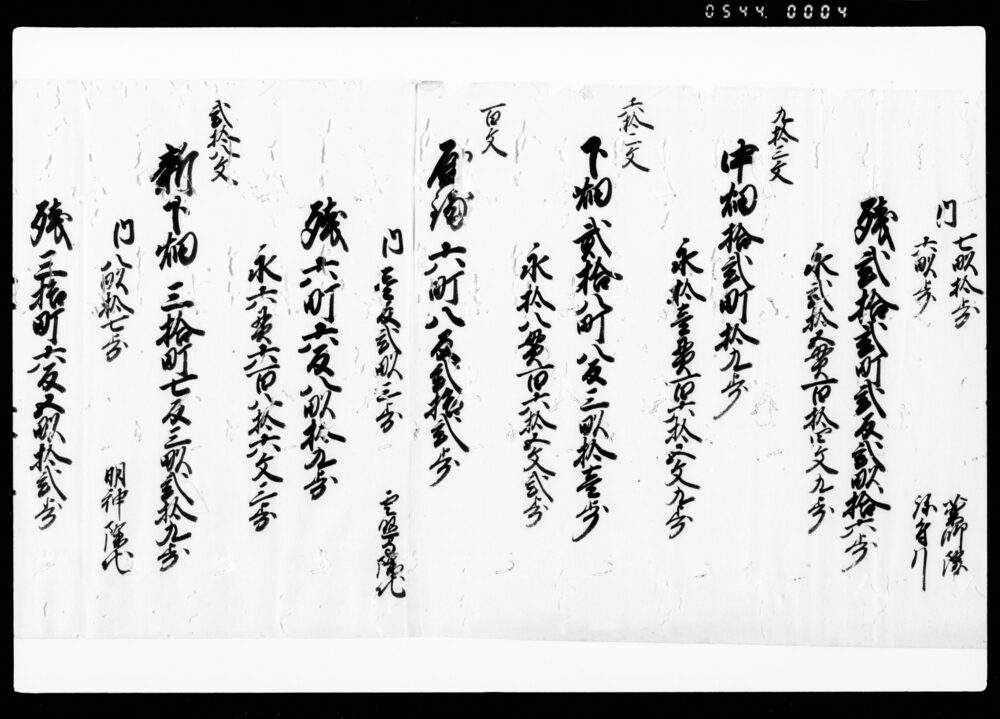 0544. 0004
内 七畝拾歩
六畝歩
残弐拾弐町弐反弐畝拾六歩
永弐拾五貫百拾四文九分
九拾三文
中畑拾弐町拾九歩
永拾壱貫百六拾五文九分
六拾三文
下畑弐拾八町八反三畝拾壱歩
永拾八貫百六拾五文弐分
百文
屋舗 六町八反弐拾弐歩
内 壱反弐畝三歩 除地
残 六町六反八畝拾九歩
永六貫六百八拾六文三分
弐拾八文
新下畑 三拾町七反三畝弐拾九歩
内 八畝拾七歩 明神除地
残 三拾町六反五畝拾弐歩